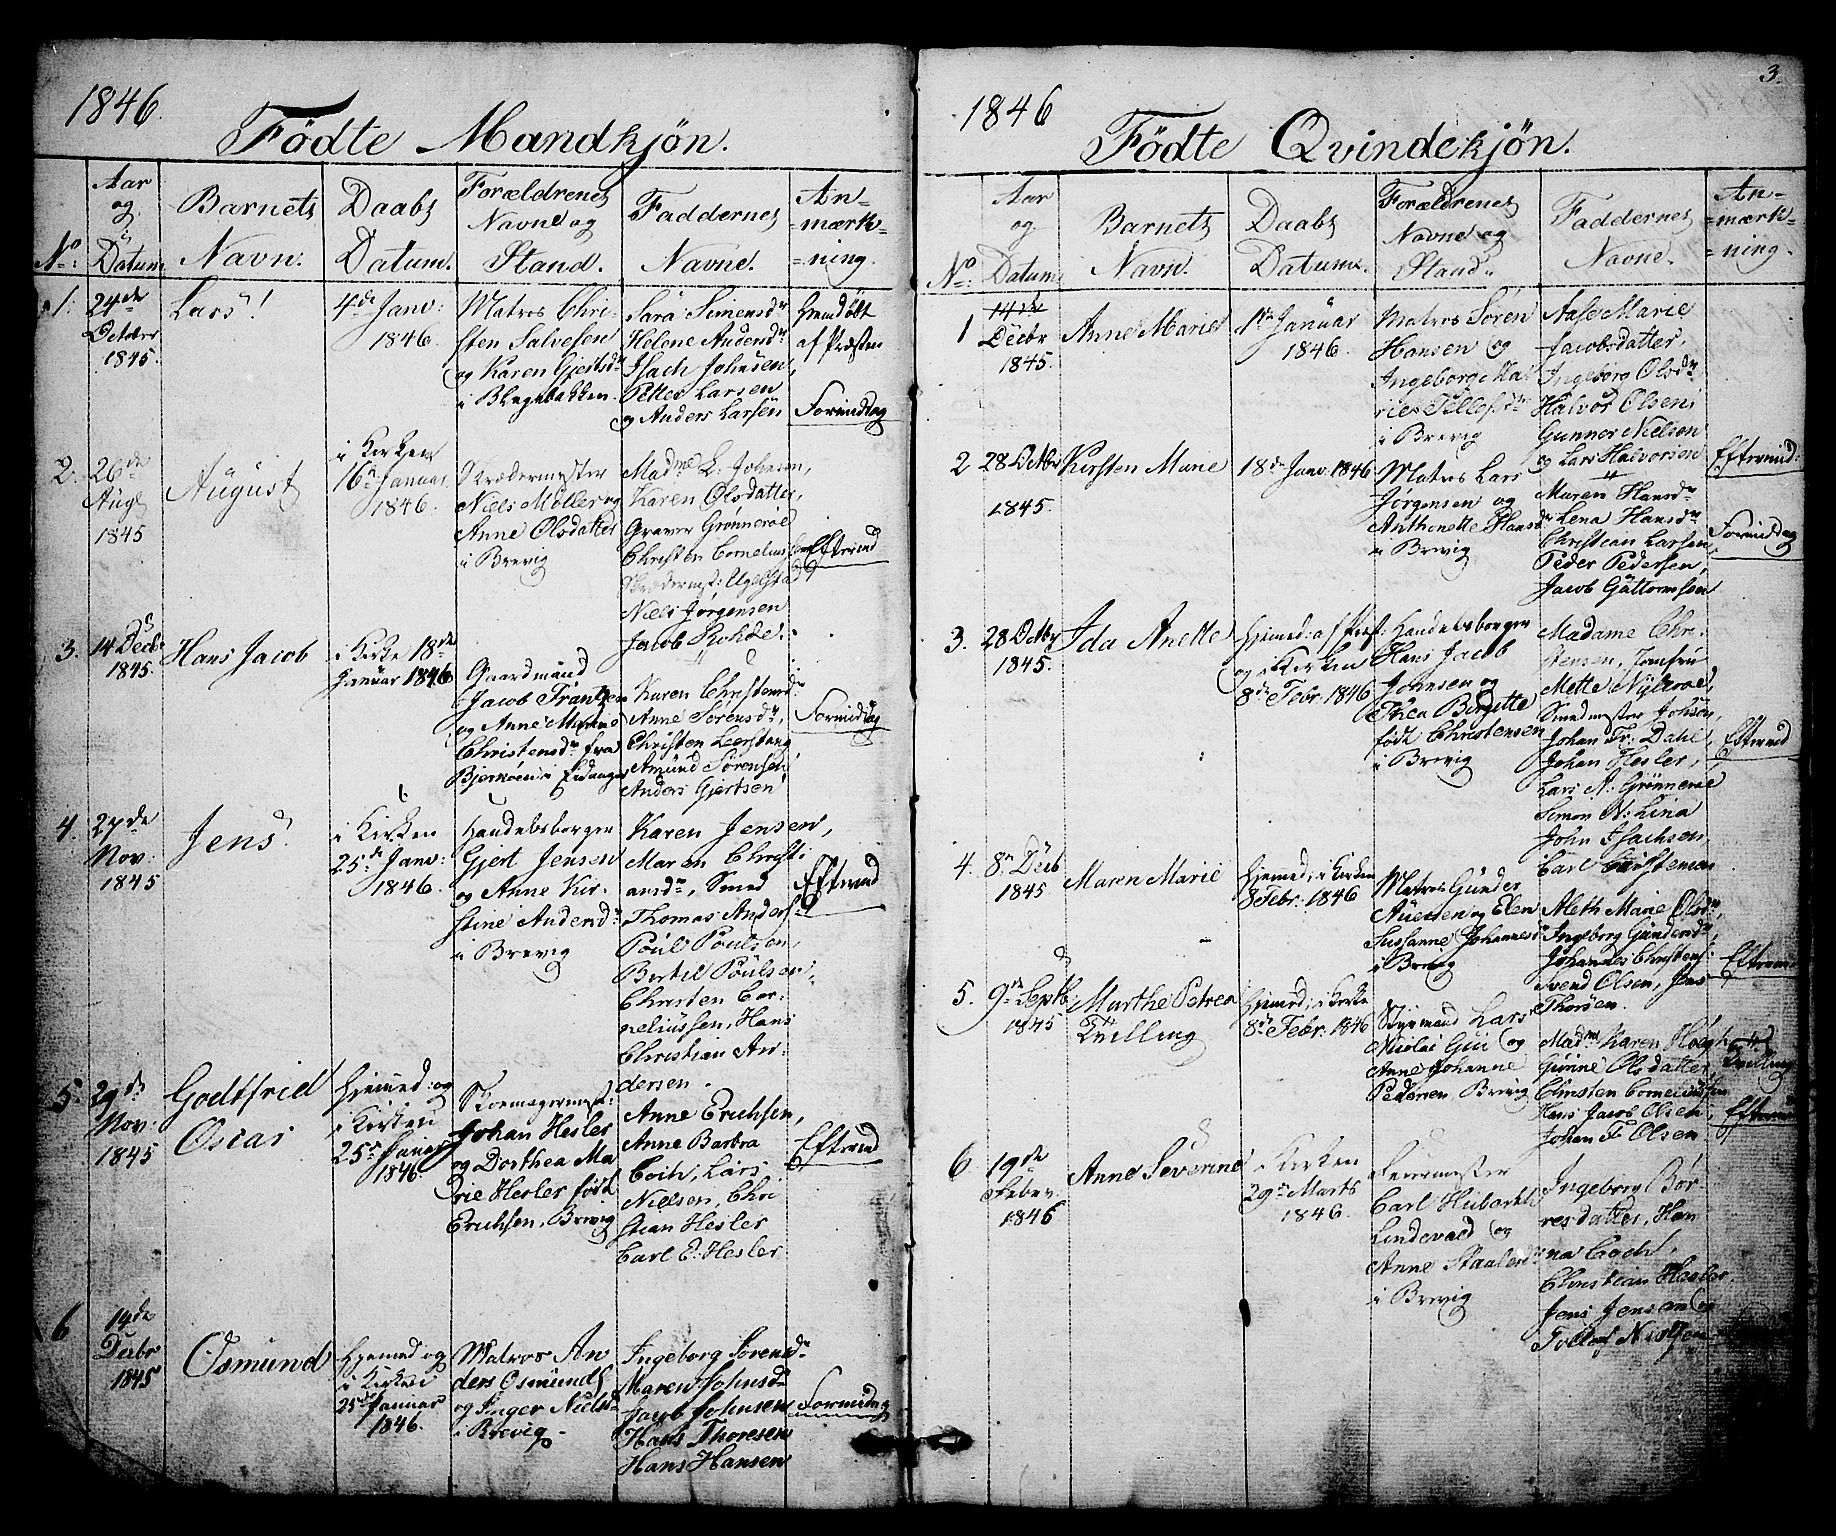 1846.
Födte Mandkjön.
No:
Aar
og
Datum
Barnets
Navn.
Daabs
Datum.
Forældrenes
Navne og
Stand.
Faddernes
Navne.
An=
=mærk=
=ning.
1.
24de
1845.
Lars!
4de Janv:
1846.
Matros Chri-
sten Salvesen
og Karen Gjertsdr
i Blegebakken.
Sara Simensdr
Helene Audensdr
Isach Johnsen
Petter Larsen
og Anders Larsen
Hjemdöbt
af Præsten
Formiddag
2.
26de
Aug
1845
August
i Kirken
16de Januar
1846.
Skrædermester
Niels Möller og
Anne Olsdatter
i Brevig
Madme L. Johnsen,
Karen Olsdatter,
Graver Grönneröe
Christen Corneliussen
Skrædermst: Ugelstad
Niels Jörgensen
Jacob Rohde.
Eftermid
3.
14 Decbr
1845.
Hans Jacob
i Kirke 18de
Januar 1846
Gaardmand
Jacob Frantzen
og Anne Maria
Christensdr fra
Bjerköen i Eidanger
Karen Christensdr
Anne Sörensdr,
Christen Leerstang
Amund Sörensen
Anders Gjertsen
Formiddag
4.
27de
Nov:
1845
Jens.
i Kirken
25de Janv:
1846.
Handelsborger
Gjert Jensen
og Anne Kir-
stine Audensdr
i Brevig
Karen Jensen,
Maren Christi
ansdr, Smed
Thomas Anders:
Poul Poulsen,
Bertil Poulsen
Christen Cor-
neliussen, Hans
Christian An-
dersen.
Eftermid
5.
29de
Nov:
1845
Godtfried
Oscar
Hjemmed: og
i Kirken
25de Januar
1846.
Skomagermest:
Johan Hesler
og Dorthea Ma
rie Hesler født
Erichsen, Brevig
Anne Erichsen,
Anne Barbra
Coch, Lars
Nielsen, Chri
stian Hesler
Carl E. Hesler
Eftermid
6
14de
Decbr
1845
Osmund
Hjemmed og
i Kirken
25de Januar
1846.
Matros An
ders Osmunds
og Inger Nielsdr
i Brevig.
Ingeborg Sörensdr
Maren Johnsdr
Jacob Johnsen
Hans Thoresen
Hans Hansen
Formiddag
3.
1846
Födte Qvindekjön.
No:
Aar
og
Datum
Barnets
Navn.
Daabs
Datum.
Forældrenes
Navne og
Stand.
Faddernes
Navne.
An=
=mærk=
=ning.
1
14de
Decbr
1845.
Anne Marie
1ste Januar
1846.
Matros Sören
Hansen og
Ingeborg Ma-
rie Tellefsdr
i Brevig
Aase Marie
Jacobsdatter,
Ingeborg Olsdr
Halvor Olsen,
Gunner Nielsen
og Lars Halvorsen
Eftermid:
2
28 Octbr
1845.
Kirsten Marie
18de Janv: 1846
Matros Lars
Jörgensen og
Anthonette Hansdr
i Brevig
Maren Hansdr
Lena Hansdr
Christian Larsen
Peder Pedersen,
Jacob Guttormsen
Formiddag
3.
28 Octbr
1845.
Ida Anette
Hjemmed: af Præst:
og i Kirken
8de Febr. 1846
Handelsborger
Hans Jacob
Johnsen og
Thea Birgitte
født Christensen
i Brevig
Madame Chri-
stensen, Jomfru
Mette Nyeröe,
Smedmester Johsen,
Johan Fr. Dahl
Johan Hesler,
Lars A. Grönneröe
Simon N. Lina
John Isachsen,
Carl Christensen
Eftermid
4.
8de Decb
1845
Maren Marie
Hjemmed, i Kirken
8 Febr: 1846
Matros Gunder
Auensen og Elen
Susanne Johannesdr
i Brevig
Aleth Marie Olsdr,
Ingeborg Gundersdr,
Johannes Christens:
Svend Olsen, Jens
Thorsen.
Eftermid
5.
9de Septb
1845
Marthe Petrea
Tvilling
Hjemmed, i Kirke
8de Febr: 1846
Styrmand Lars
Nicolai Gui og
Anne Johanne
Pedersen Brevig
Madme Karen Höegh
Gunne Olsdatter,
Christen Corneliussen
Hans Jacob Olsen,
Johan F. Olsen
Tvilling
Eftermid
6
19de
Febr.
1846
Anne Severine
i Kirken
29de Marts
1846.
Carl Hubarth
Lindevald og
Anne Staalesdr
i Brevig
Ingeborg Bör-
resdatter, Han
na Coch,
Christian Hesler
Jens Jensen og
Tollef Nielsen